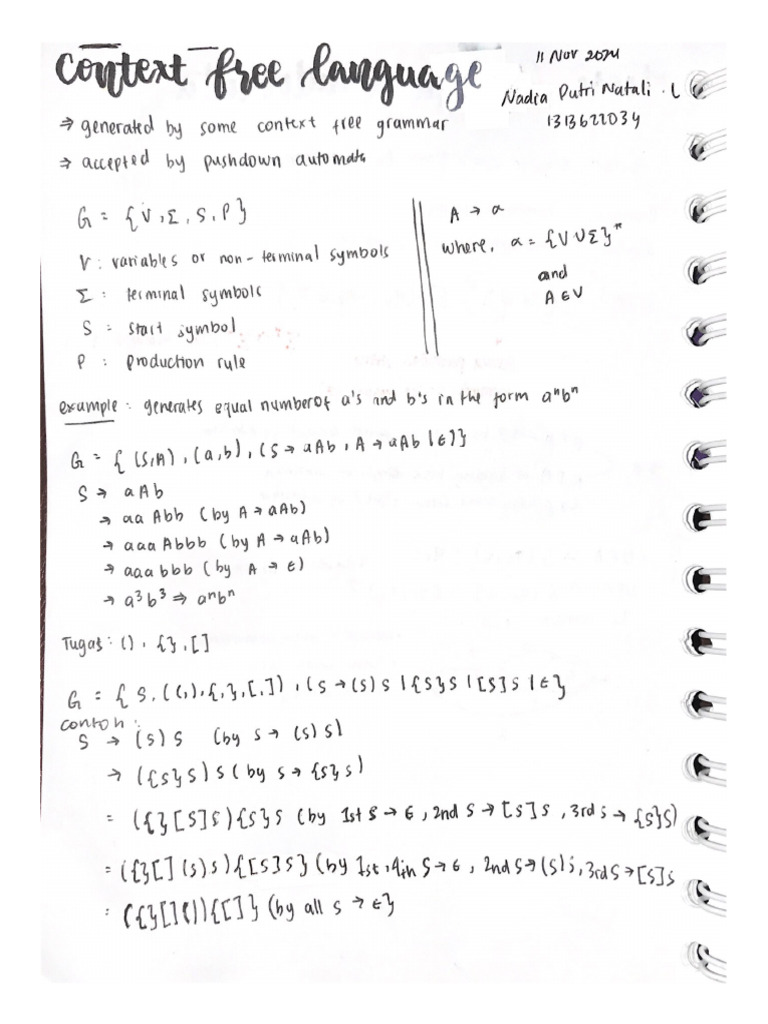 Context free language
11 Nov 2024
Nadia Putri Natali . L
1313622034
⇒ generated by some context free grammar
⇒ accepted by pushdown automata
G = {V, Σ, S, P}
V : variables or non-terminal symbols
Σ : terminal symbols
S : start symbol
P : production rule
A → α
where, α = {V ∪ Σ}*
and
A ∈ V
example : generates equal number of a's and b's in the form aⁿbⁿ
G = { (S,A), (a,b), (S → aAb, A → aAb | ϵ)}
S → aAb
→ aa Abb (by A → aAb)
→ aaa Abbb (by A → aAb)
→ aaa bbb (by A → ϵ)
→ a³b³ ⇒ aⁿbⁿ
Tugas : (), {}, []
G = { S, ((,),{,},[,]), (S → (S) S | {S} S | [S] S | ϵ}
contoh :
S → (S) S (by S → (S) S)
→ ({S} S) S (by S → {S} S)
= ({} [S] S) {S} S (by 1st S → ϵ, 2nd S → [S] S, 3rd S → {S} S)
= ({} [] (S) S) {[S] S} (by 1st, 4th S → ϵ, 2nd S → (S) S, 3rd S → [S] S
= ({} [] ()) {[]} (by all S → ϵ}